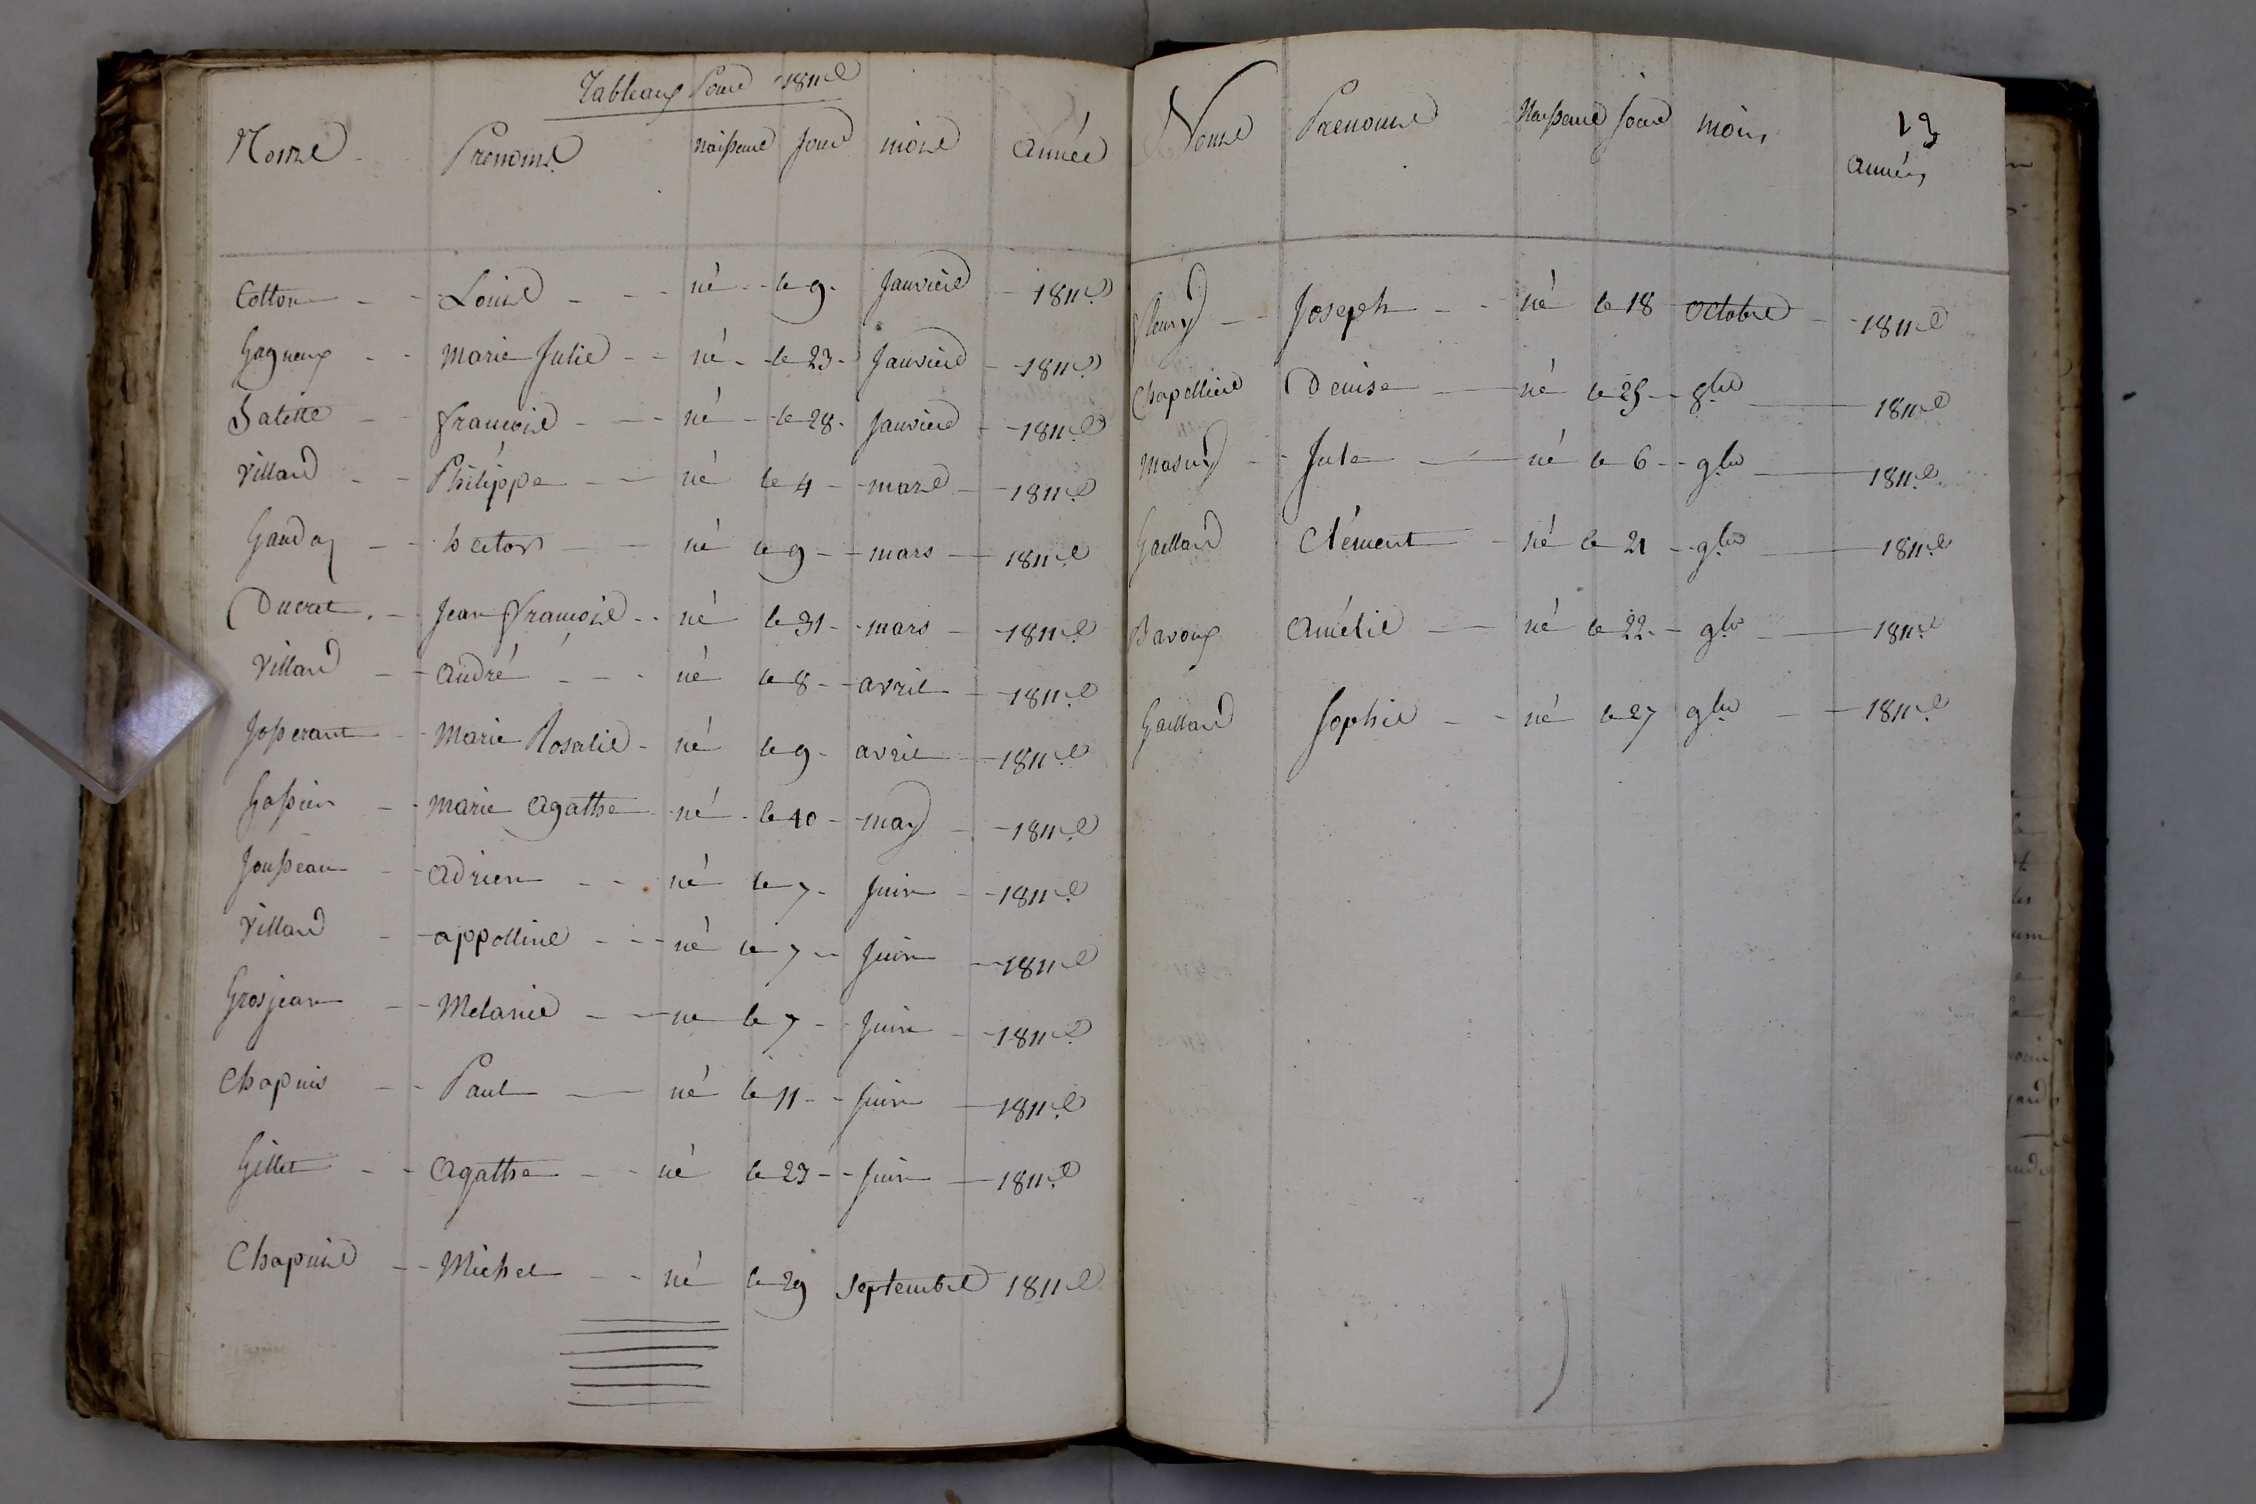 Tableaux Pour 1811
Noms Prenoms Naissance Jour mois Année
Cotton Louis né le 9 Janvier 1811
Gagneux Marie Julie né le 23 Janvier 1811
François né le 28 Janvier 1811
Villard Philippe né le 4 mars 1811
né le 9 mars 1811
Ducret Jean François né le 31 mars 1811
Villard André né le 8 avril 1811
Josserant Marie Rosalie né le 9 avril 1811
Marie Agathe né le 10 may 1811
Jousseau Adrien né le 7 Juin 1811
Villard appolline né le 7 Juin 1811
Grosjean Melanie né le 7 Juin 1811
Chapuis Paul né le 11 Juin 1811
Gillet Agathe né le 23 Juin 1811
Chapuis Michel né le 29 septembre 1811
13
Noms Prenoms Naissance Jour mois Années
Joseph né le 18 octobre 1811
Denise né le 25 8bre 1811
Jule né le 6 9bre 1811
Gaillard Clément né le 21 9bre 1811
Bavoux Amélie né le 22 9bre 1811
Gaillard Sophie né le 27 9bre 1811